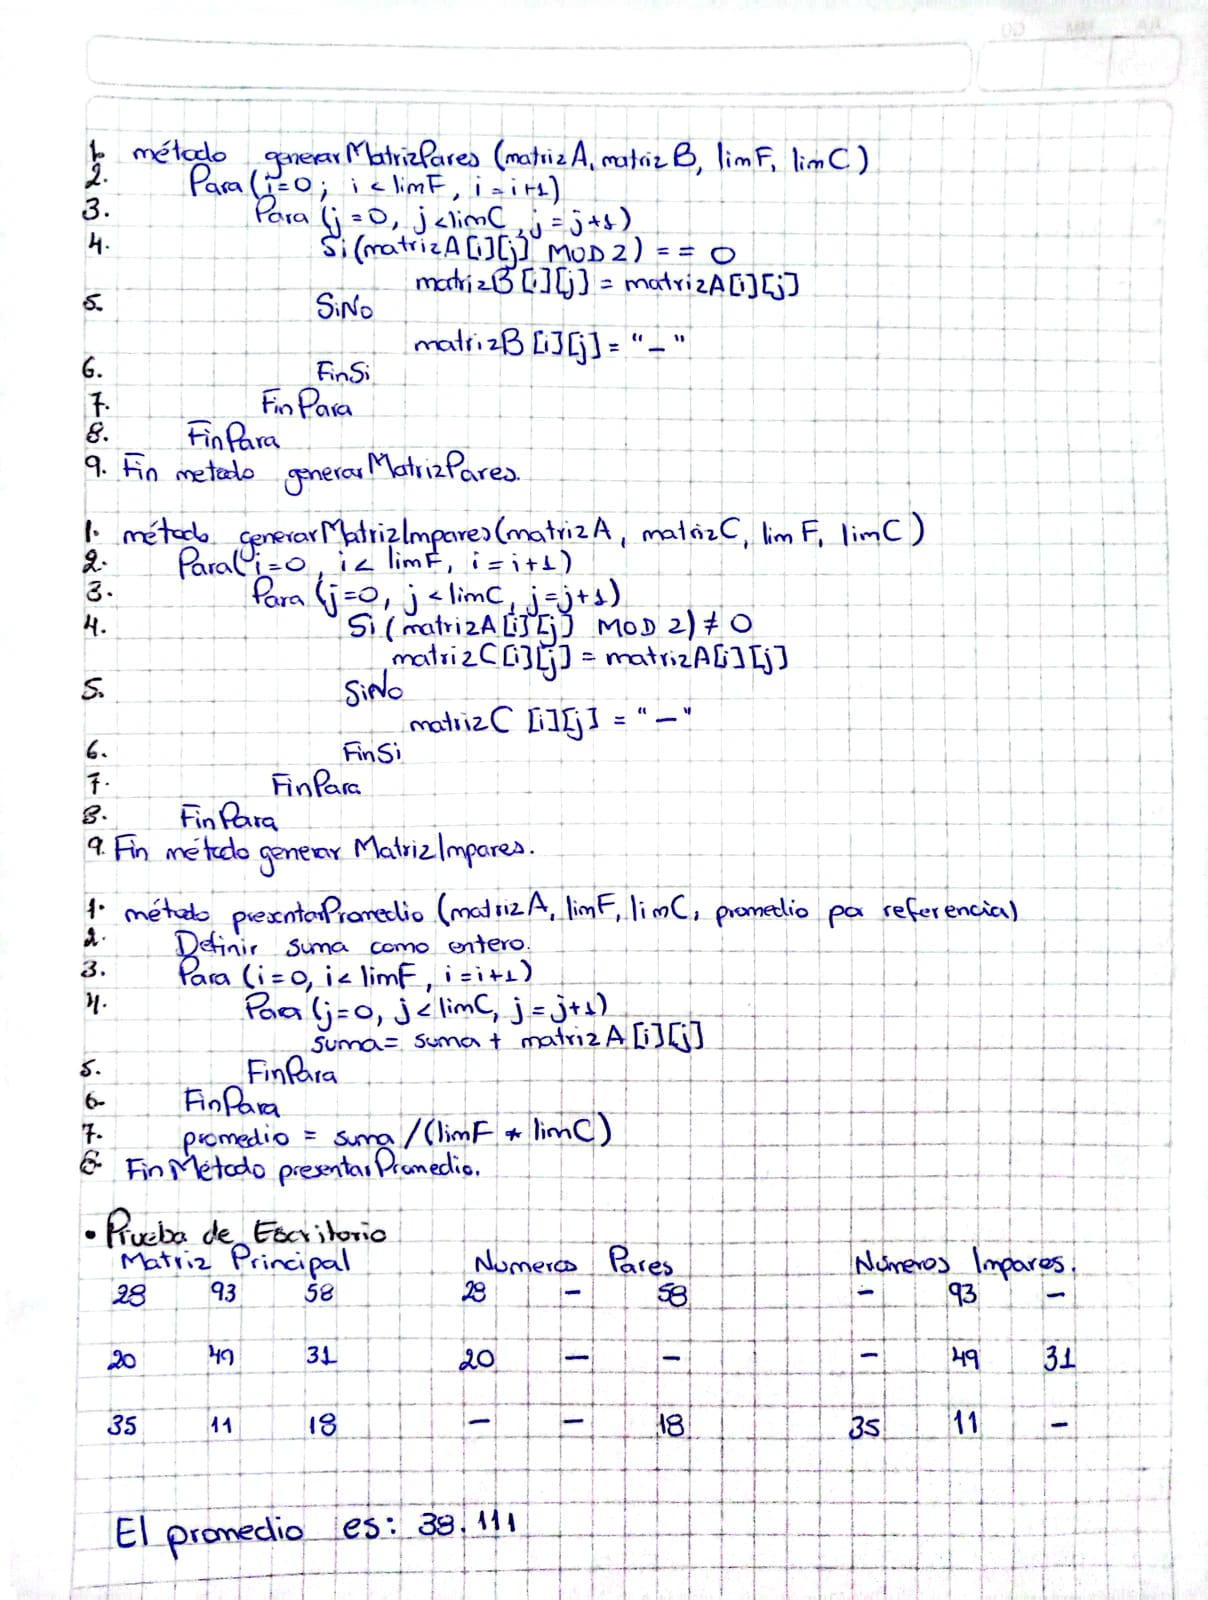 1. método generarMatrizPares (matrizA, matrizB, limF, limC)
2. Para (i=0; i < limF, i = i+1)
3. Para (j = 0, j<limC, j = j+1)
4. Si (matrizA[i][j] MOD 2) == 0
matrizB[i][j] = matrizA[i][j]
5. SiNo
matrizB[i][j] = "-"
6. FinSi
7. FinPara
8. FinPara
9. Fin metodo generarMatrizPares.
1. método generarMatrizImpares(matrizA, matrizC, limF, limC)
2. Para(i=0, i< limF, i = i+1)
3. Para (j=0, j < limC, j=j+1)
4. Si (matrizA[i][j] MOD 2) ≠ 0
matrizC[i][j] = matrizA[i][j]
5. SiNo
matrizC [i][j] = "-"
6. FinSi
7. FinPara
8. FinPara
9. Fin método generar MatrizImpares.
1. método presentarPromedio (matrizA, limF, limC, promedio por referencia)
2. Definir suma como entero.
3. Para (i=0, i< limF, i=i+1)
4. Para (j=0, j<limC, j = j+1)
suma = suma + matrizA[i][j]
5. FinPara
6. FinPara
7. promedio = suma /(limF * limC)
8. Fin Método presentarPromedio.
• Prueba de Escritorio
Matriz Principal Numeros Pares Números Impares.
28 93 58 28 - 58 - 93 -
20 49 31 20 - - - 49 31
35 11 18 - - 18 35 11 -
El promedio es: 38.111